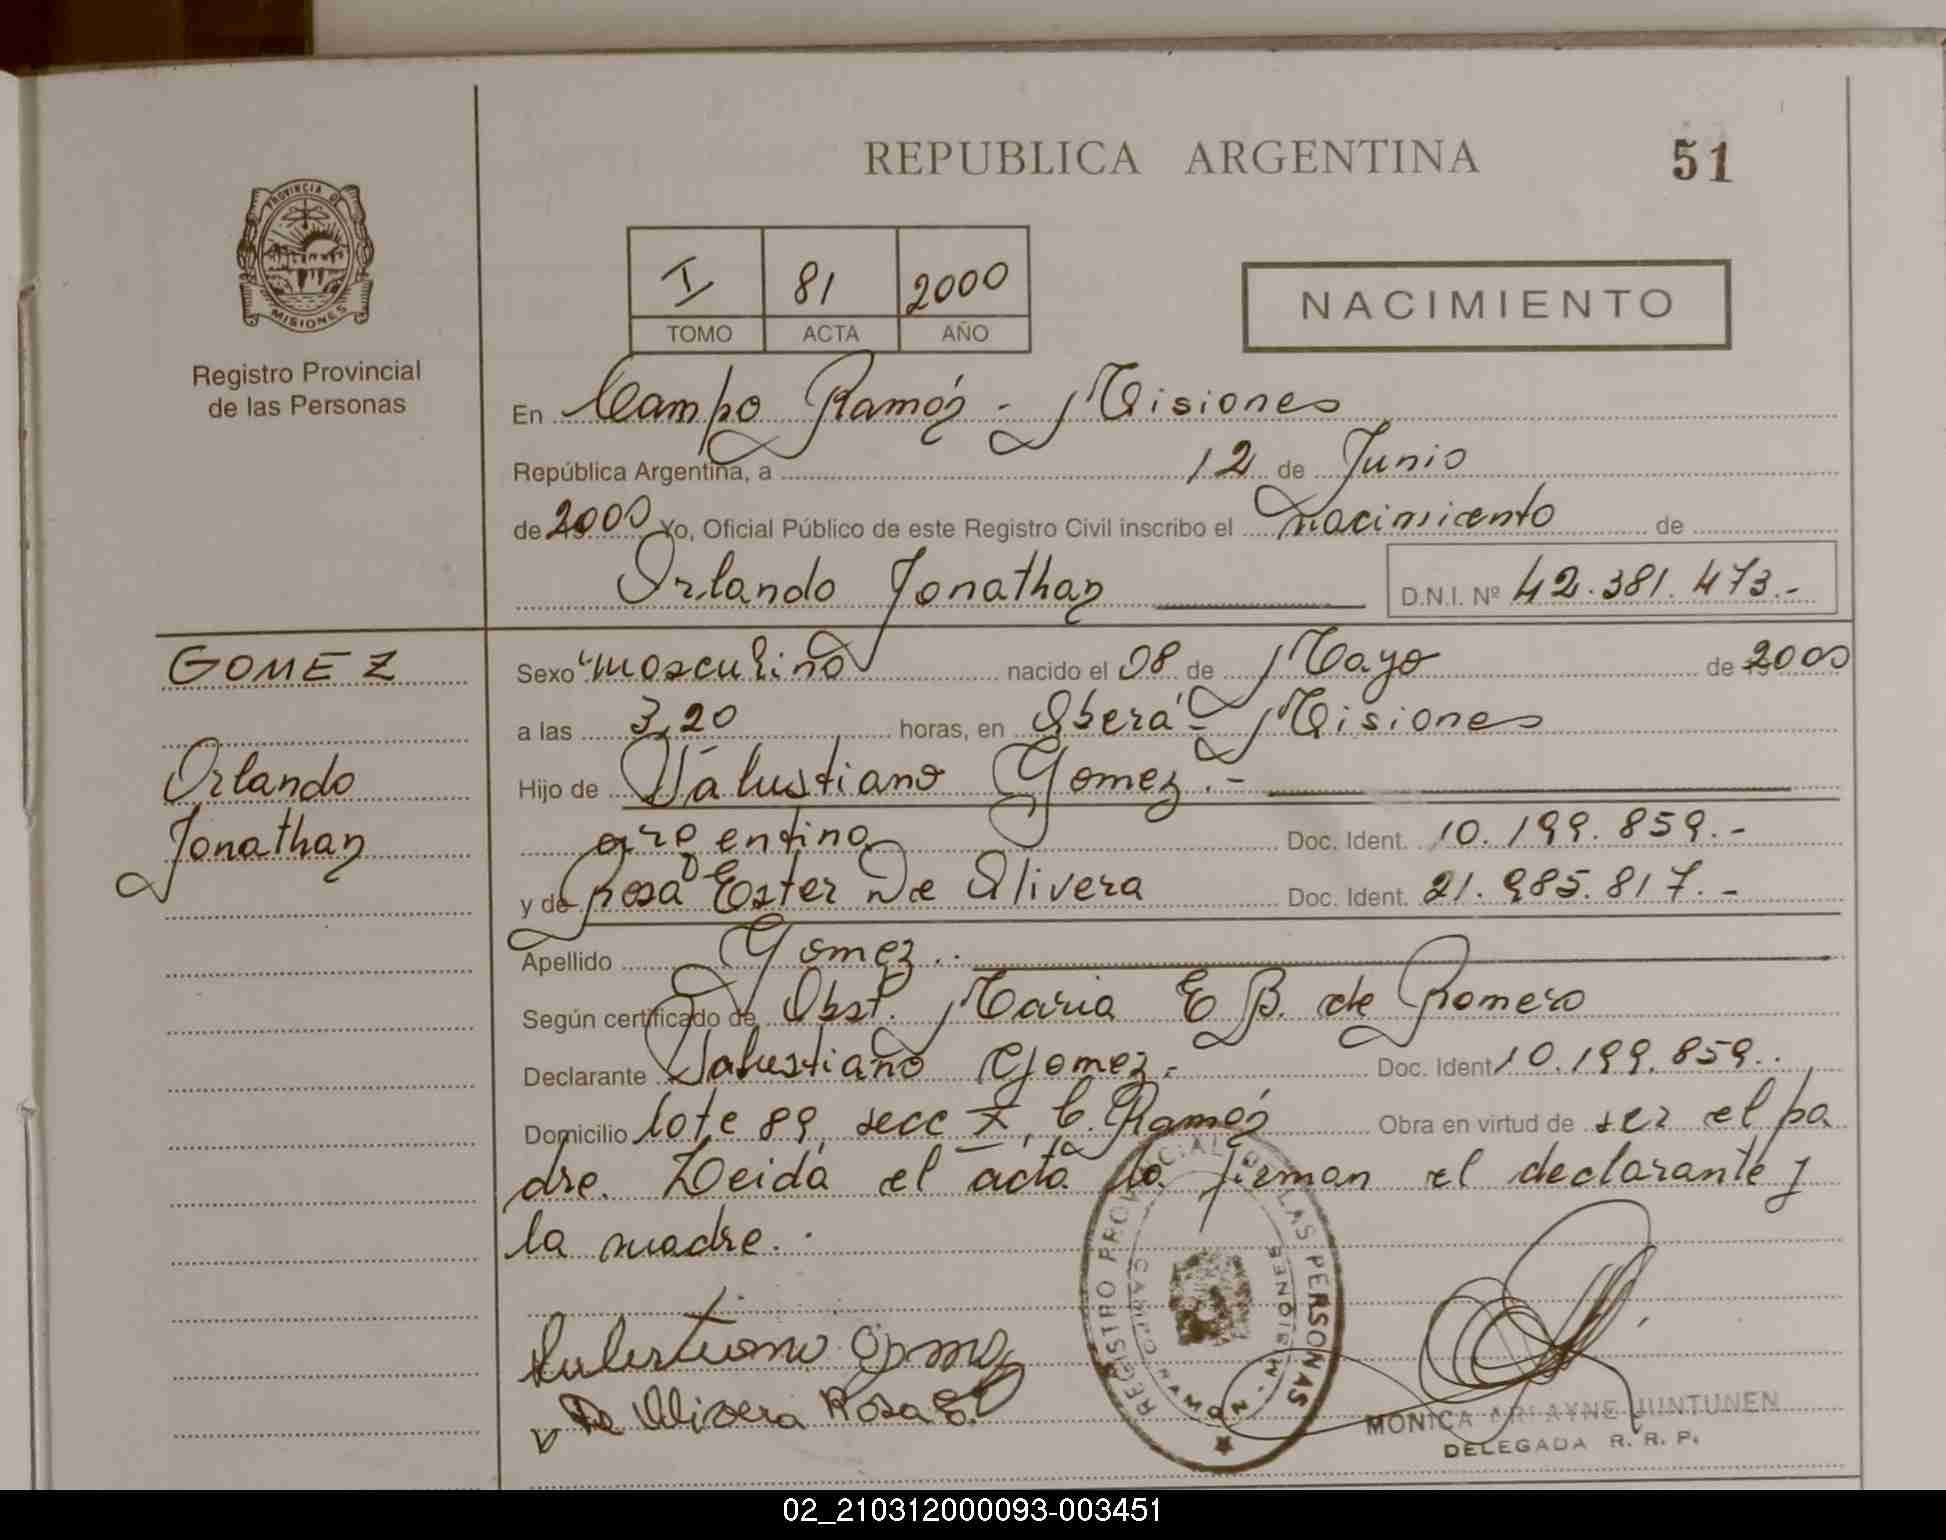 REPUBLICA ARGENTINA
51
PROVINCIA DE
MISIONES
Registro Provincial
de las Personas
I 81 2000
TOMO ACTA AÑO
NACIMIENTO
En Campo Ramón - Misiones
República Argentina, a 12 de Junio
de 2000 Yo, Oficial Público de este Registro Civil inscribo el nacimiento de
Orlando Jonathan D.N.I. Nº 42.381.473.-
GOMEZ
Orlando
Jonathan
Sexo masculino nacido el 08 de Mayo de 2000
a las 3,20 horas, en Oberá - Misiones
Hijo de Salustiano Gomez.-
argentino Doc. Ident. 10.199.859.-
y de Rosa Ester De Olivera Doc. Ident. 21.985.817.-
Apellido Gomez..
Según certificado de Obst. Maria E B. de Romero
Declarante Salustiano Gomez.- Doc. Ident 10.199.859..
Domicilio lote 89, secc X, C. Ramón Obra en virtud de ser el pa
dre. Leida el acta la firman el declarante y
la madre..
Salustiano Gomez
De Olivera Rosa E.
REGISTRO PROVINCIAL DE LAS PERSONAS
CAMPO RAMON - MISIONES
MONICA ARLAYNE JUNTUNEN
DELEGADA R. R. P.
02_210312000093-003451